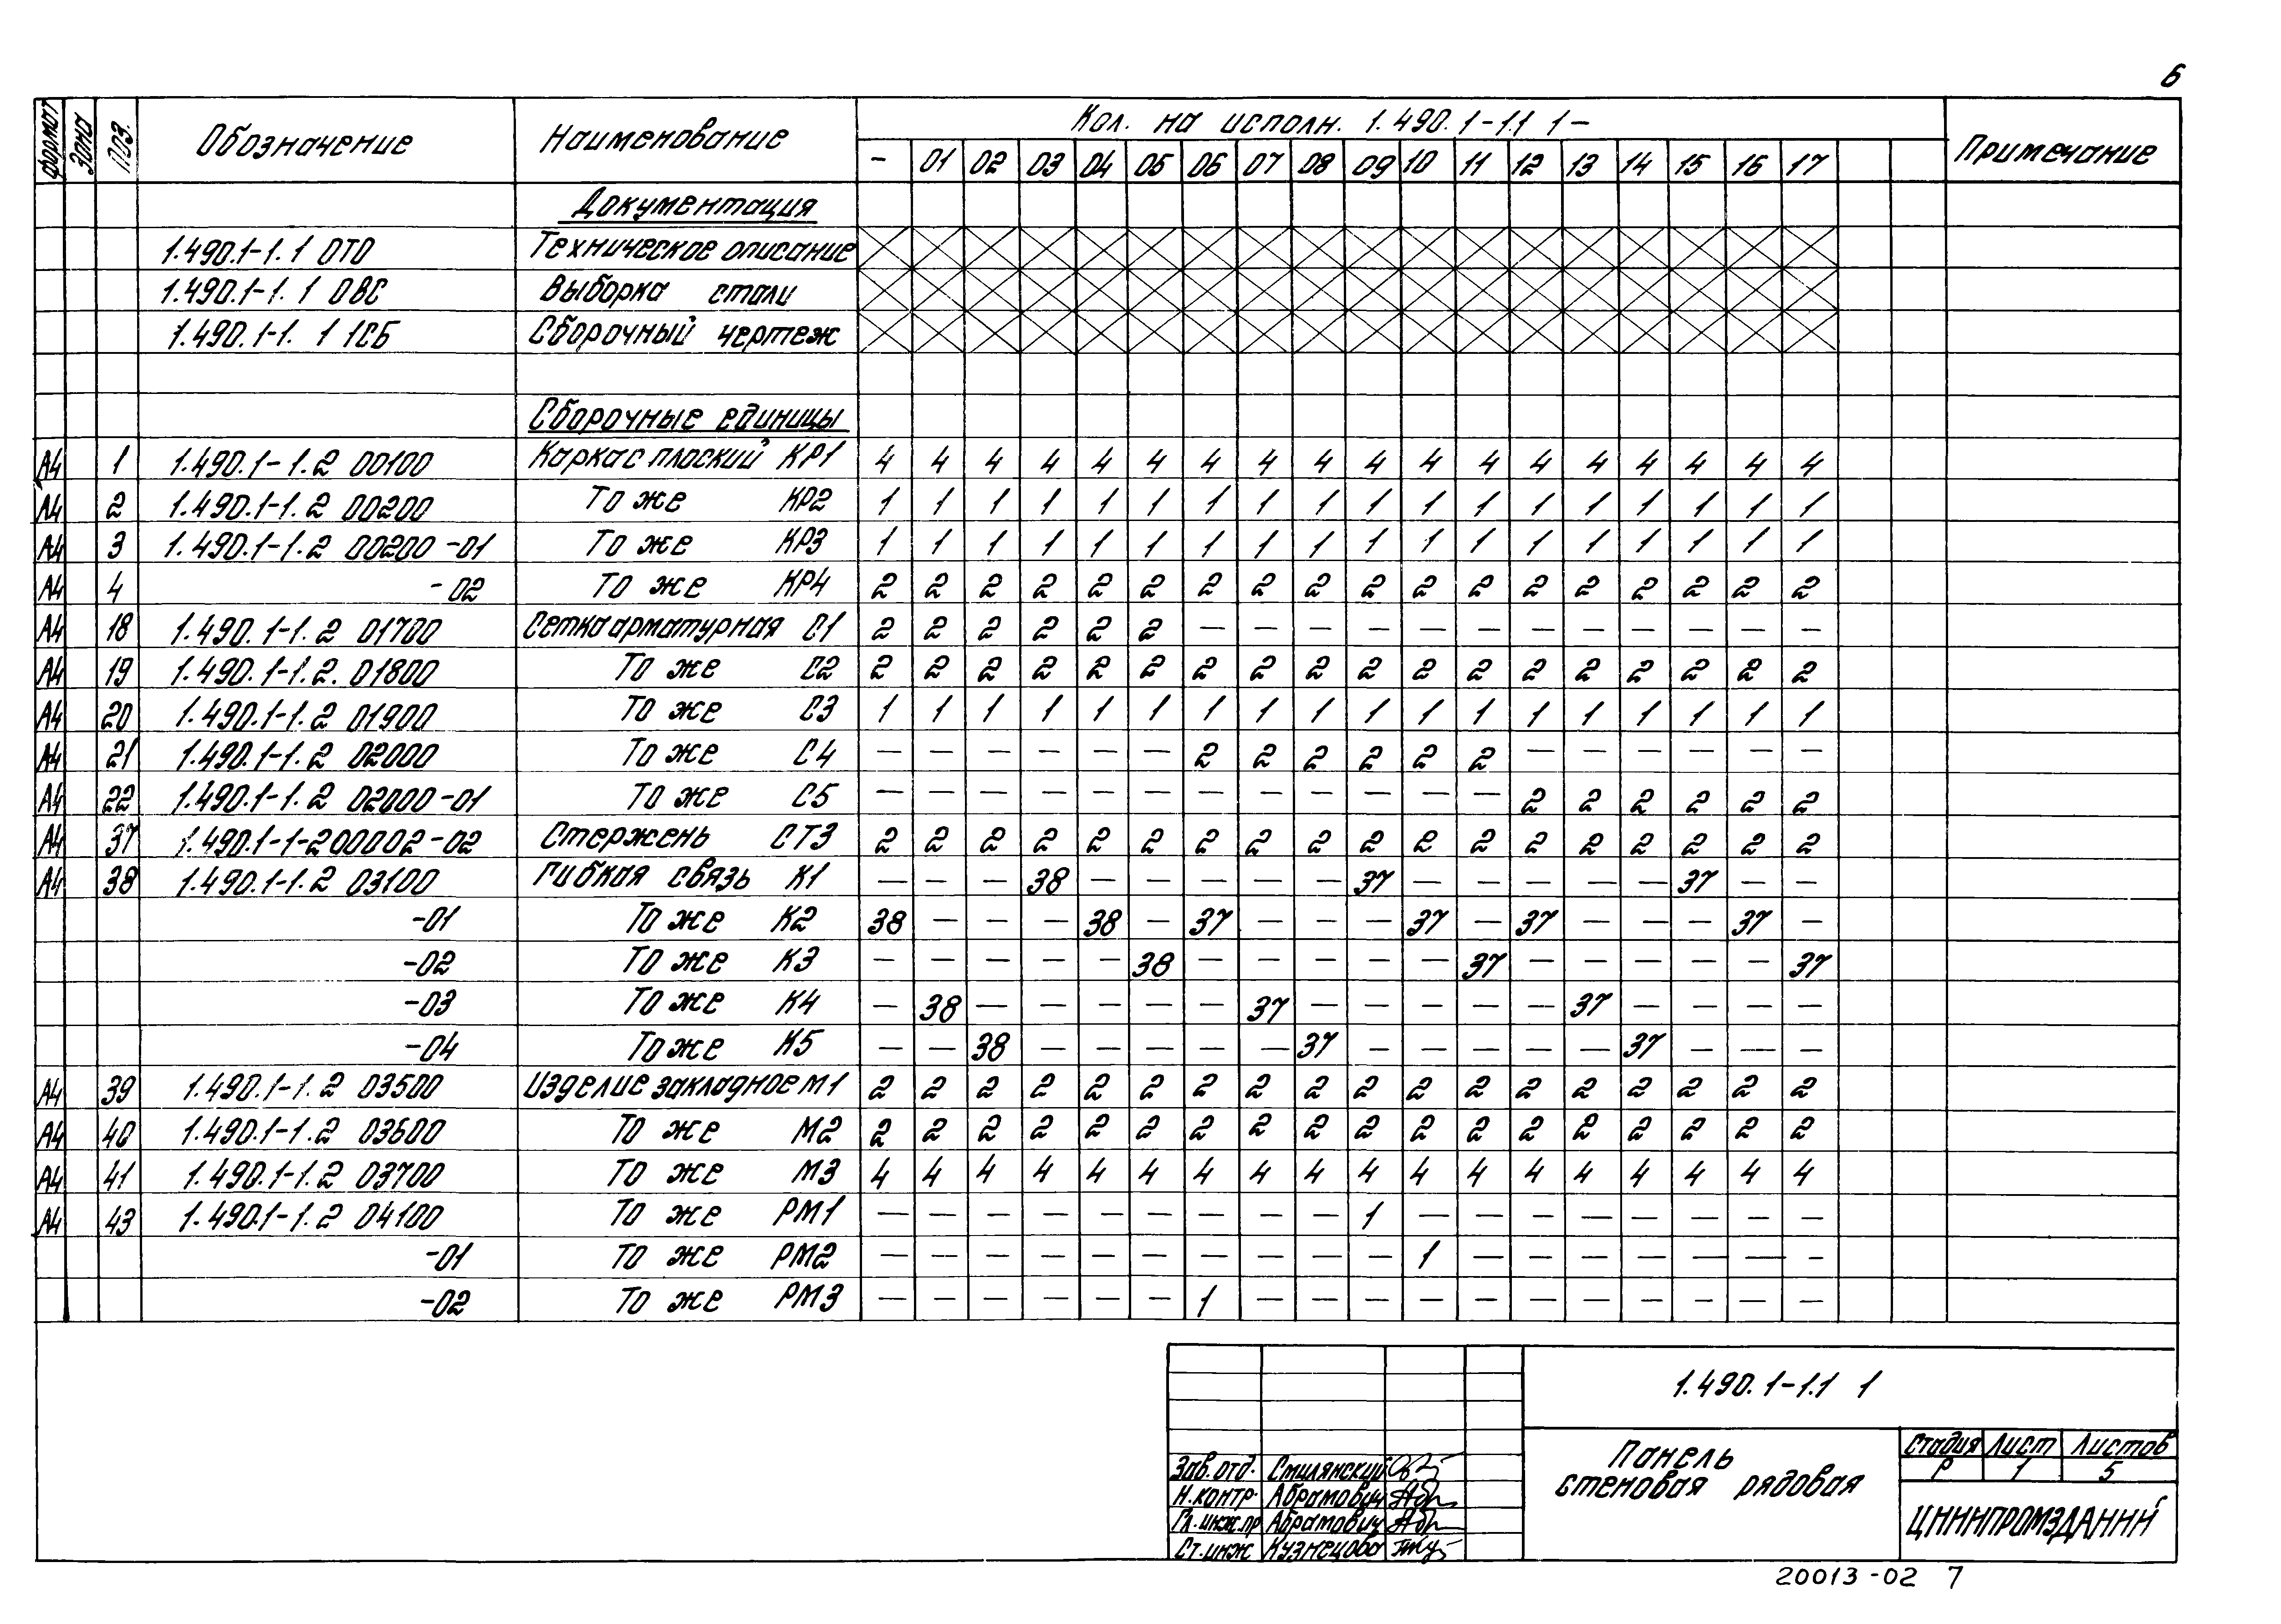 6
формат Зона Поз. Обозначение Наименование Кол. на исполн. 1.490.1-1.1 1- Примечание
- 01 02 03 04 05 06 07 08 09 10 11 12 13 14 15 16 17
Документация
1.490.1-1.1 ОТО Техническое описание
1.490.1-1.1 ОВС Выборка стали
1.490.1-1.1 1СБ Сборочный чертеж
Сборочные единицы
А4 1 1.490.1-1.2 00100 Каркас плоский КР1 4 4 4 4 4 4 4 4 4 4 4 4 4 4 4 4 4 4
А4 2 1.490.1-1.2 00200 То же КР2 1 1 1 1 1 1 1 1 1 1 1 1 1 1 1 1 1 1
А4 3 1.490.1-1.2 00200-01 То же КР3 1 1 1 1 1 1 1 1 1 1 1 1 1 1 1 1 1 1
А4 4 -02 То же КР4 2 2 2 2 2 2 2 2 2 2 2 2 2 2 2 2 2 2
А4 18 1.490.1-1.2 01700 Сетка арматурная С1 2 2 2 2 2 2 – – – – – – – – – – – –
А4 19 1.490.1-1.2. 01800 То же С2 2 2 2 2 2 2 2 2 2 2 2 2 2 2 2 2 2 2
А4 20 1.490.1-1.2 01900 То же С3 1 1 1 1 1 1 1 1 1 1 1 1 1 1 1 1 1 1
А4 21 1.490.1-1.2 02000 То же С4 – – – – – – 2 2 2 2 2 2 – – – – – –
А4 22 1.490.1-1.2 02000-01 То же С5 – – – – – – – – – – – – 2 2 2 2 2 2
А4 37 1.490.1-1-200002-02 Стержень СТ3 2 2 2 2 2 2 2 2 2 2 2 2 2 2 2 2 2 2
А4 38 1.490.1-1.2 03100 Гибкая связь К1 – – – 38 – – – – – 37 – – – – – 37 – –
-01 То же К2 38 – – – 38 – 37 – – – 37 – 37 – – – 37 –
-02 То же К3 – – – – – 38 – – – – – 37 – – – – – 37
-03 То же К4 – 38 – – – – – 37 – – – – – 37 – – – –
-04 То же К5 – – 38 – – – – – 37 – – – – – 37 – – –
А4 39 1.490.1-1.2 03500 Изделие закладное М1 2 2 2 2 2 2 2 2 2 2 2 2 2 2 2 2 2 2
А4 40 1.490.1-1.2 03600 То же М2 2 2 2 2 2 2 2 2 2 2 2 2 2 2 2 2 2 2
А4 41 1.490.1-1.2 03700 То же М3 4 4 4 4 4 4 4 4 4 4 4 4 4 4 4 4 4 4
А4 43 1.490.1-1.2 04100 То же РМ1 – – – – – – – – – 1 – – – – – – – –
-01 То же РМ2 – – – – – – – – – – 1 – – – – – – –
-02 То же РМ3 – – – – – – 1 – – – – – – – – – – –
1.490.1-1.1 1
Зав. отд. Смилянский
Н.контр. Абрамович
Гл.инж.пр Абрамович
Ст.инж Кузнецова
Панель
стеновая рядовая
Стадия Лист Листов
Р 1 5
ЦНИИПРОМЗДАНИЙ
20013-02 7